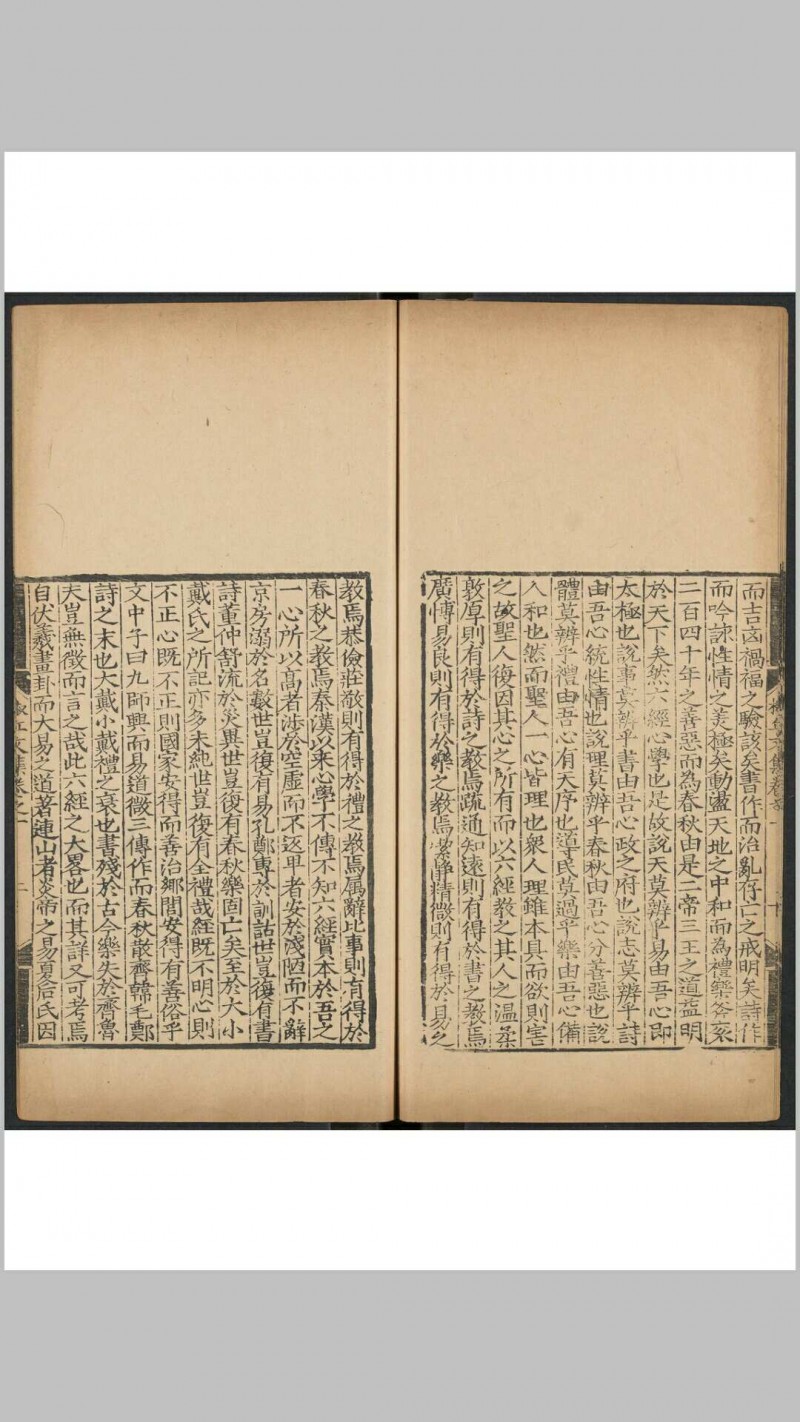 而吉凶禍福之驗該矣書作而治亂存亡之戒明矣詩作
而吟詠性情之美極矣動盪天地之中和而為禮樂衮
二百四十年之善惡而為春秋由是二帝三王之道益明
於天下矣然六經心學也是故說天莫辨乎易由吾心即
太極也說事莫辨乎書由吾心政之府也說志莫辨乎詩
由吾心統性情也說理莫辨乎春秋由吾心分善惡也說
體莫辨乎禮由吾心有天序也導民莫過乎樂由吾心備
人和也然而聖人一心皆理也衆人理雖本具而欲則害
之故聖人復因其心之所有而以六經教之其人之溫柔
敦厚則有得於詩之教焉疏通知遠則有得於書之教焉
廣博易良則有得於樂之教焉潔靜精微則有得於易之
教焉恭儉莊敬則有得於禮之教焉属辭比事則有得於
春秋之教焉秦漢以来心學不傳不知六經實本於吾之
一心所以髙者涉於空虛而不返卑者安於淺陋而不辭
京房溺於名數世豈復有易孔鄭專於訓詁世豈復有書
詩董仲舒流於災異世豈復有春秋樂固亡矣至於大小
戴氏之所記亦多未純世豈復有全禮哉經既不明心則
不正心既不正則國家安得而善治鄉閭安得有善俗乎
文中子曰九師興而易道微三傳作而春秋散齊韓毛鄭
詩之末也大戴小戴禮之衰也書殘於古今樂失於齊魯
夫豈無徵而言之哉此六經之大畧也而其詳又可考焉
自伏羲畫卦而大易之道著連山者炎帝之易夏后氏因
文集卷之一
二